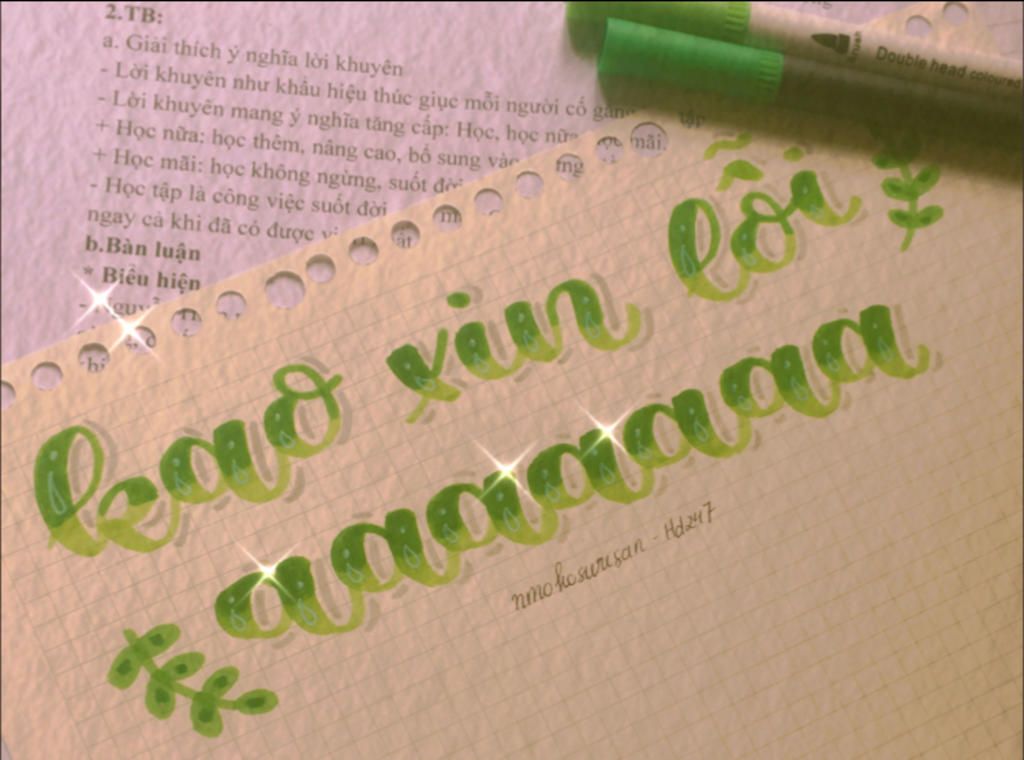 2.TB:
a. Giải thích ý nghĩa lời khuyên
- Lời khuyên như khẩu hiệu thúc giục mỗi người cố gắng tập
- Lời khuyên mang ý nghĩa tăng cấp: Học, học nữa, học mãi.
+ Học nữa: học thêm, nâng cao, bổ sung vào
+ Học mãi: học không ngừng, suốt đời
- Học tập là công việc suốt đời
ngay cả khi đã có được
b.Bàn luận
* Biểu hiện
Double head coloured
brush
kao xin lỗi
aaaaaaa
nmohosurusan - Hd247